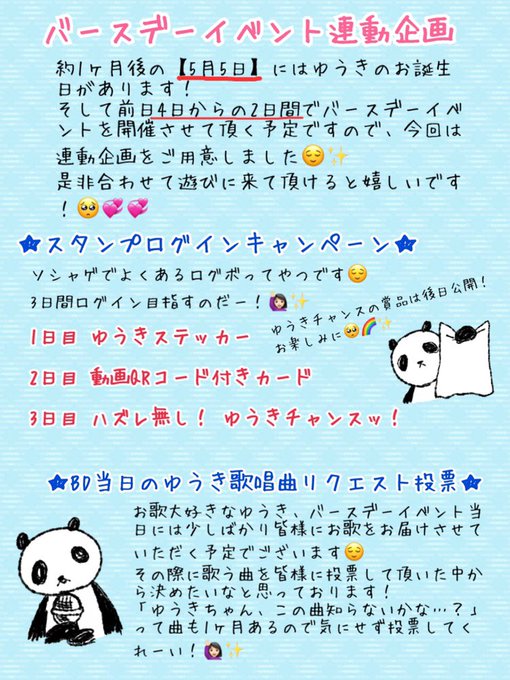 バースデーイベント連動企画
約1ヶ月後の【5月5日】にはゆうきのお誕生
日があります！
そして前日4日からの2日間でバースデーイベ
ントを開催させて頂く予定ですので、今回は
連動企画をご用意しました😌✨
是非合わせて遊びに来て頂けると嬉しいです
！🥺💞💞
★スタンプログインキャンペーン★
ソシャゲでよくあるログボってやつです😌
3日間ログイン目指すのだー！🙋🏻‍♀️✨
ゆうきチャンスの賞品は後日公開！
お楽しみに🥺🌈✨
1日目 ゆうきステッカー
2日目 動画QRコード付きカード
3日目 ハズレ無し！ ゆうきチャンスッ！
★BD当日のゆうき歌唱曲リクエスト投票★
お歌大好きなゆうき、バースデーイベント当
日には少しばかり皆様にお歌をお届けさせて
いただく予定でございます😌
その際に歌う曲を皆様に投票して頂いた中か
ら決めたいなと思っております！
「ゆうきちゃん、この曲知らないかな…？」
って曲も1ヶ月あるので気にせず投票してく
れーい！🙋🏻‍♀️✨